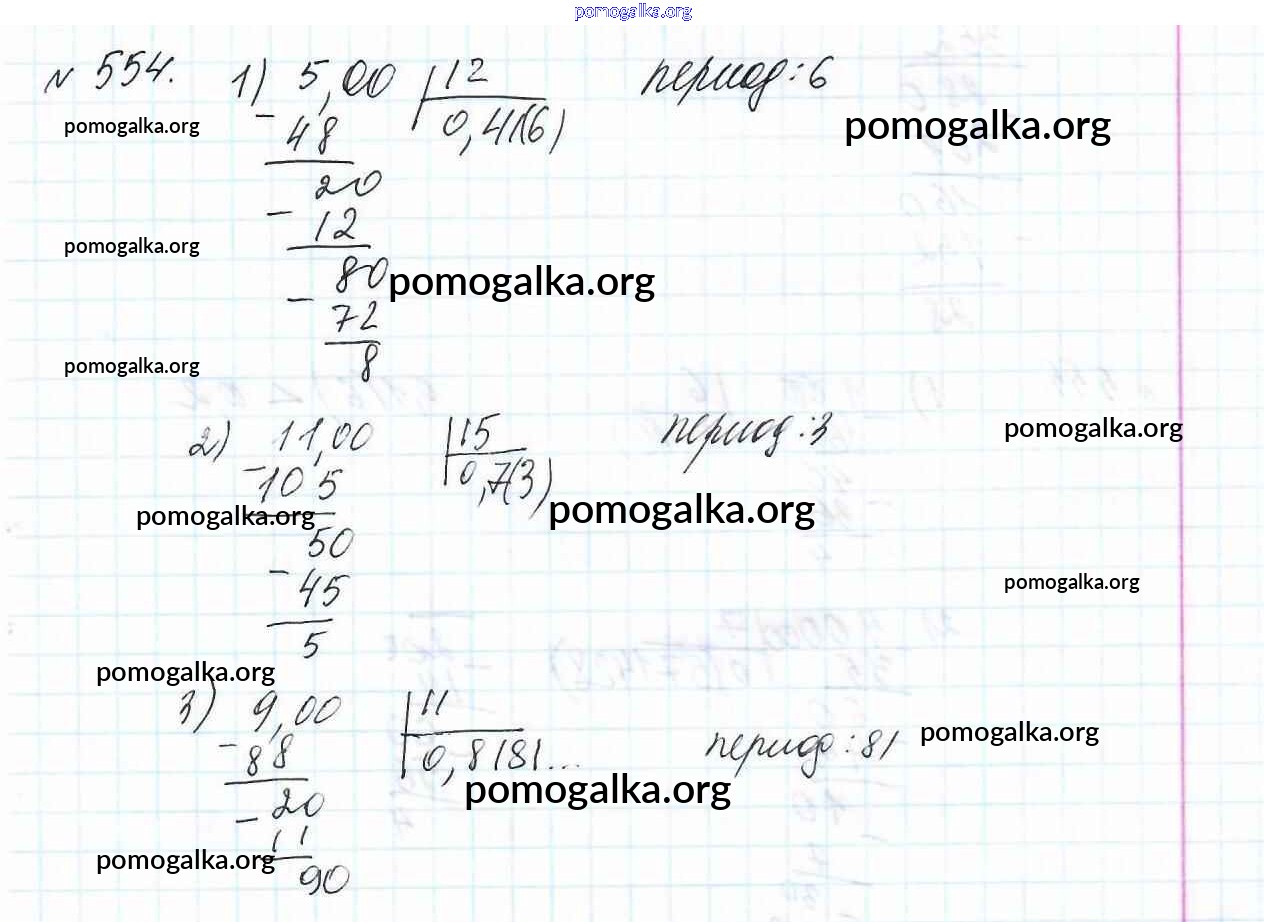 pomogalka.org
№ 554. 1) 5,00 12 период: 6
pomogalka.org - 48 0,41(6) pomogalka.org
20
- 12
pomogalka.org
80 pomogalka.org
- 72
pomogalka.org 8
2) 11,00 15 период: 3 pomogalka.org
- 10 5 0,7(3)
pomogalka.org pomogalka.org
50
- 45 pomogalka.org
5
pomogalka.org
3) 9,00 11
- 88 0,8181... период: 81 pomogalka.org
- 20 pomogalka.org
11
pomogalka.org
90